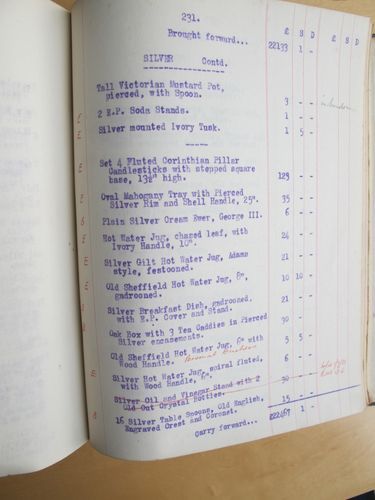 231.
£ S D £ S D
Brought forward... 22133 1 -
SILVER Contd.
Tall Victorian Mustard Pot,
pierced, with Spoon. 3 - -
2 E.P. Soda Stands. 1 - -
E
Silver mounted Ivory Tusk. 1 5 -
E
Set 4 Fluted Corinthian Pillar
Candlesticks with stepped square
base, 13½" high. 123 - -
Oval Mahogany Tray with Pierced
Silver Rim and Shell Handle, 25". 35 - -
Plain Silver Cream Ewer, George III. 6 - -
Hot Water Jug, chased leaf, with
Ivory Handle, 10". 24 - -
E
Silver Gilt Hot Water Jug, Adams
style, festooned. 21 - -
E
Old Sheffield Hot Water Jug, 8",
gadrooned. 10 10 -
E
Silver Breakfast Dish, gadrooned.
with E.P. Cover and Stand. 21 - -
Oak Box with 3 Tea Caddies in Pierced
Silver encasements. 30 - -
Old Sheffield Hot Water Jug, 6" with
Wood Handle. 5 5 -
Silver Hot Water Jug, spiral fluted,
with Wood Handle, 6". 6 - -
E
Silver Oil and Vinegar Stand with 2
Old Cut Crystal Bottles. 30 - -
16 Silver Table Spoons, Old English,
Engraved Crest and Coronet. 15 - -
Carry forward... £22467 1 -